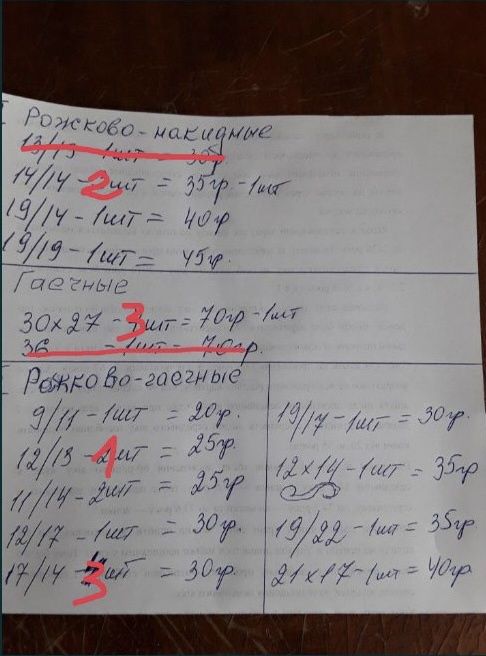 Рожково-накидные
13/13 - 1шт = 30гр
14/14 - 2шт = 35гр - 1шт
19/14 - 1шт = 40гр
19/19 - 1шт = 45гр.
Гаечные
30х27 - 3шт = 70гр - 1шт
36 - 1шт - 70гр.
Рожково-гаечные
9/11 - 1шт = 20гр.
12/13 - 1шт = 25гр.
11/14 - 2шт = 25гр
12/17 - 1шт = 30гр.
17/14 - 3шт = 30гр.
19/17 - 1шт = 30гр.
12х14 - 1шт = 35гр
19/22 - 1шт = 35гр
21х17 - 1шт = 40гр.